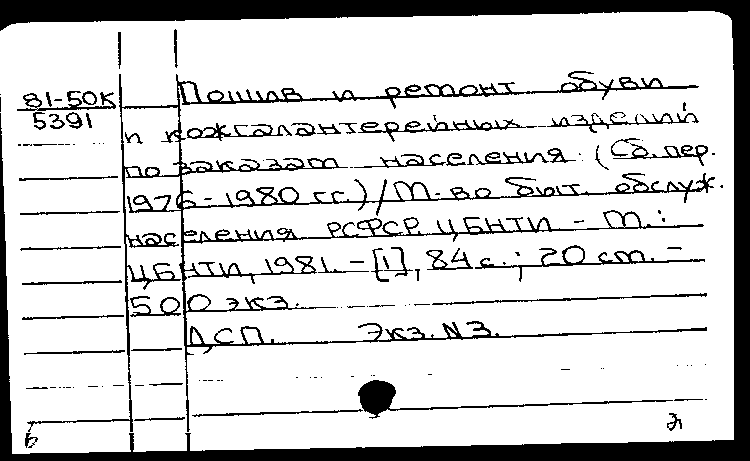 81-50К Пошив и ремонт обуви
5391 и кожгалантерейных изделий
по заказам населения. (Сб. пер.
1976-1980 гг.)/М-во быт. обслуж.
населения РСФСР. ЦБНТИ - М.:
ЦБНТИ, 1981. - [1], 84 с.; 20 см. -
500 экз.
ДСП. Экз. N 3.